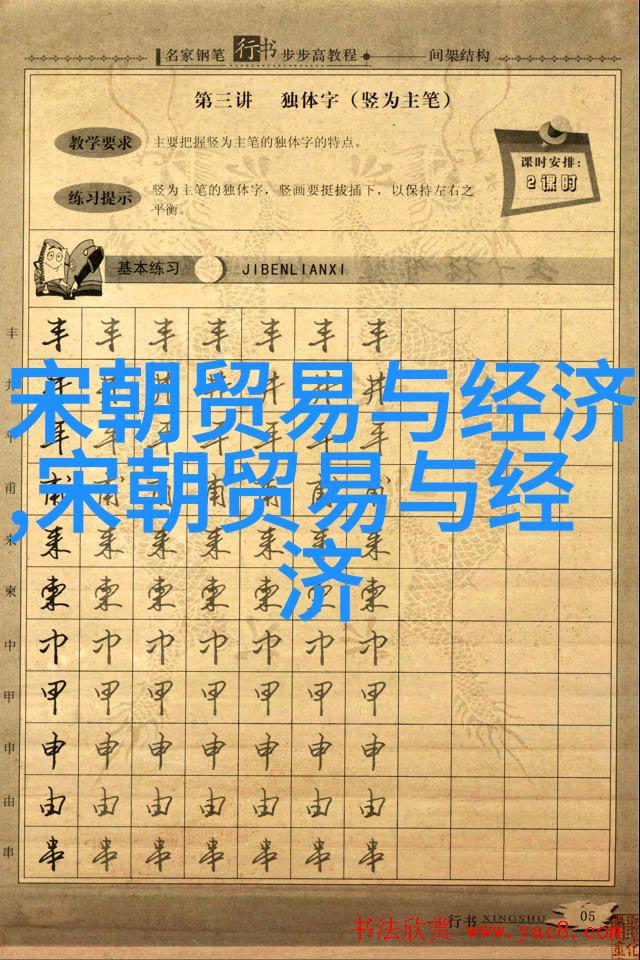 名家钢笔行书步步高教程 间架结构
第三讲 独体字（竖为主笔）
教学要求 主要把握竖为主笔的独体字的特点。
课时安排：
2课时
练习提示 竖为主笔的独体字，竖画要挺拔插下，以保持左右之
平衡。
基本练习 JIBENLIANXI
丰 丰 丰 丰 丰 丰 丰 丰
井 井 井 井 井
宋朝贸易与经济
,宋朝贸易与经
济
甫
来
柬 柬 柬 柬 柬 柬 柬
中 巾 巾 巾 巾 巾 巾 巾
甲 甲 甲 甲 甲 甲 甲 甲
申 申 申 申 申 申 申 申
由 由 由 由 由 由 由 由
串 串 串 串 串 串 串 串
行书 XINGSHU 05
书法欣赏 www.yac8.com